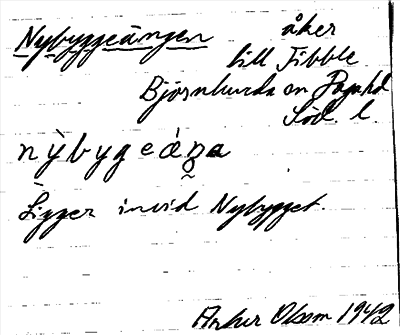 Nybyggeängen åker
till Tibble
Björnlunda sn Daga hd
Söd. l.
nỳbygeáŋa
Ligger invid Nybygget.
Artur Olsson 1942